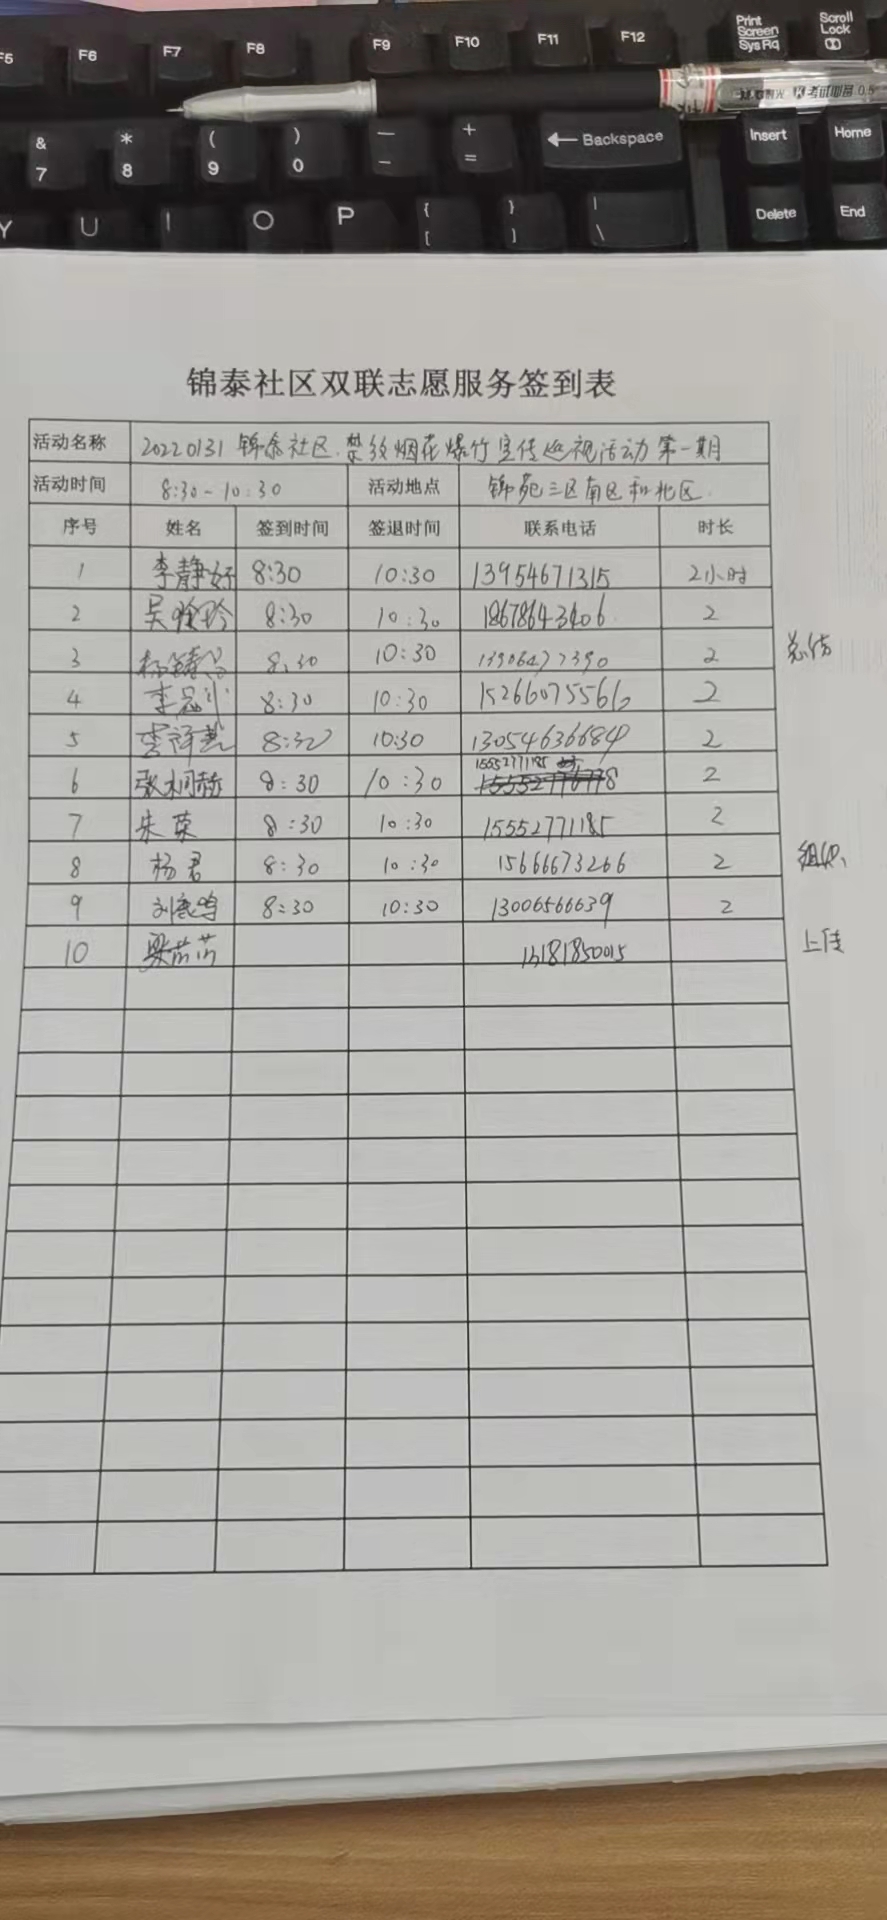 F5 F6 F7 F8 F9 F10 F11 F12 Print Screen SysRq Scroll Lock
考试必备 0.5
& 7 * 8 ( 9 ) 0 — - + = ← Backspace Insert Home
Y U I O P { [ } ] | \ Delete End
锦泰社区双联志愿服务签到表
活动名称 20220131 锦泰社区.禁放烟花爆竹宣传巡视活动第一期
活动时间 8:30-10:30 活动地点 锦苑三区南区和北区
序号 姓名 签到时间 签退时间 联系电话 时长
1 李静好 8:30 10:30 13954671315 2小时
2 8:30 10:30 18678643406 2
3 8:30 10:30 13906477390 2 总结
4 8:30 10:30 15266075566 2
5 8:30 10:30 13054636684 2
6 8:30 10:30 15552771185 2
7 朱荣 8:30 10:30 15552771185 2
8 杨君 8:30 10:30 15666673266 2 组织
9 刘鹿鸣 8:30 10:30 13006566639 2
10 梁芾芾 13181850015 上传